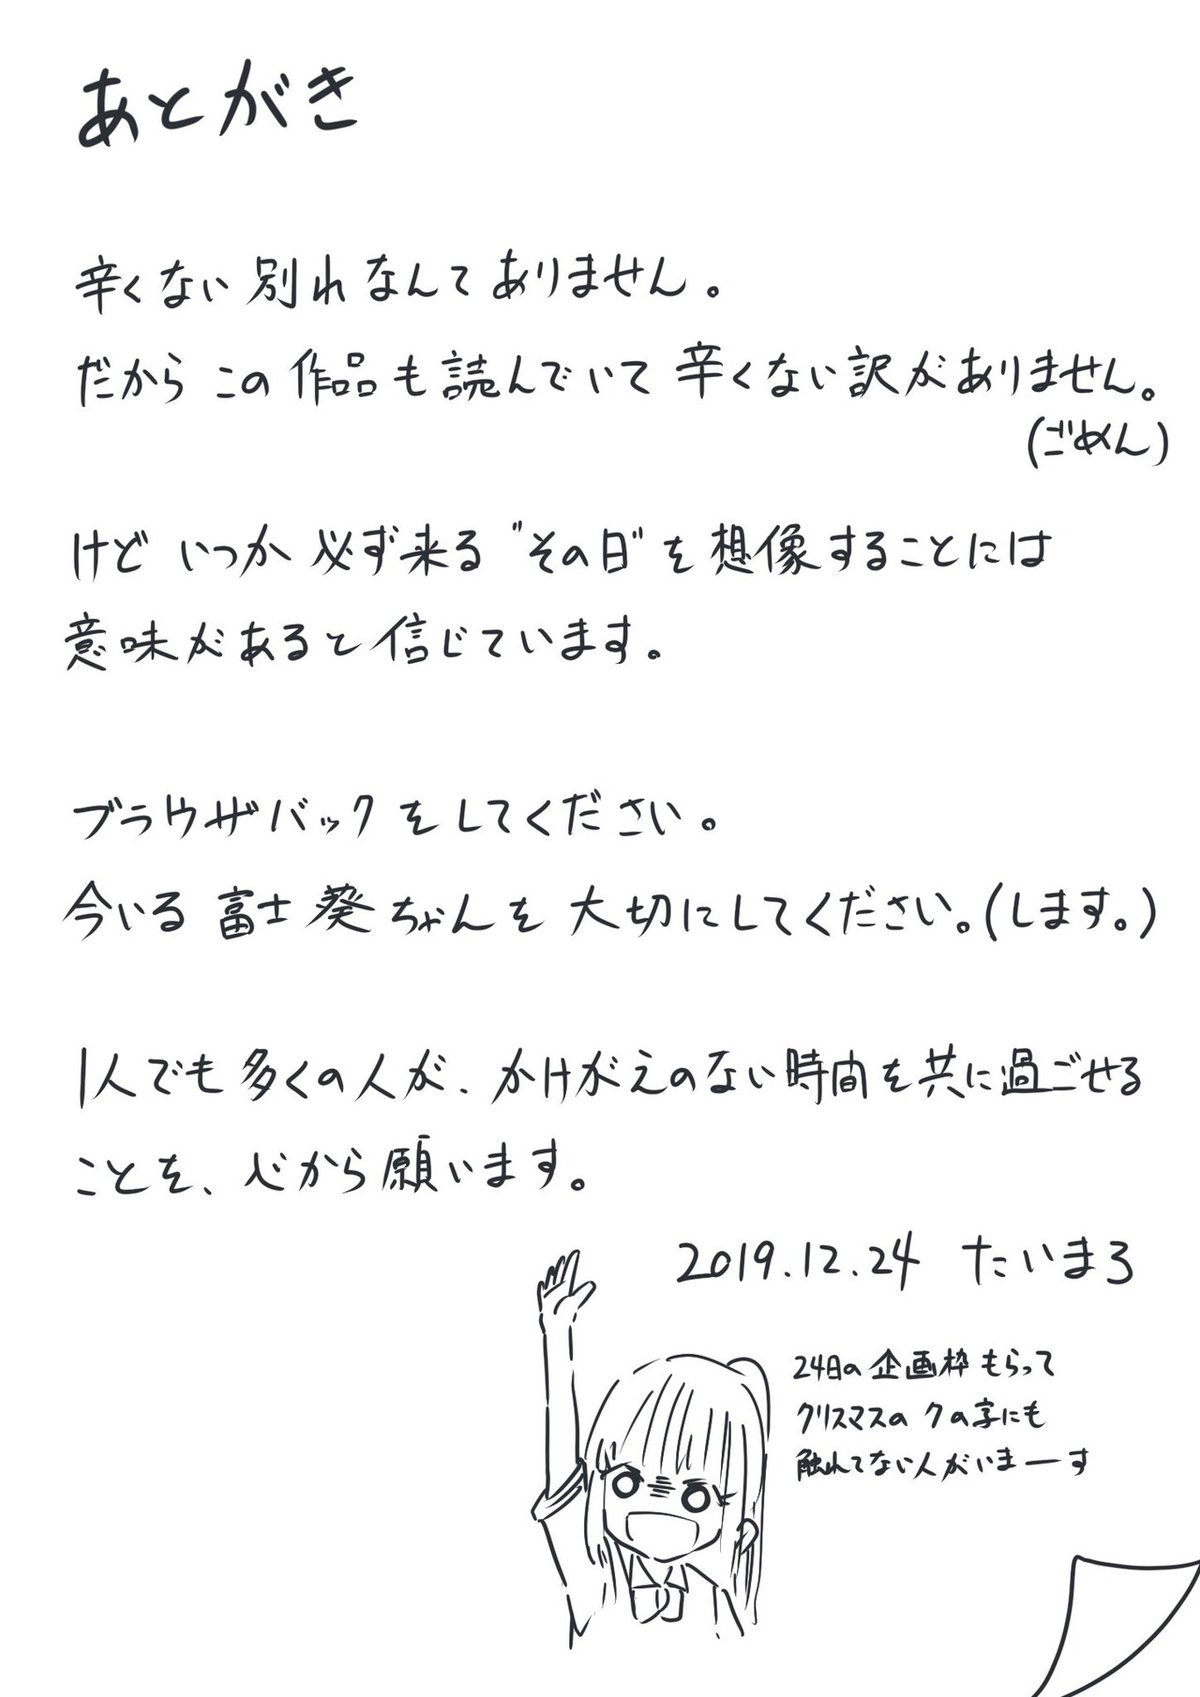 あとがき
辛くない別れなんてありません。
だからこの作品も読んでいて辛くない訳がありません。
(ごめん)
けどいつか必ず来る"その日"を想像することには
意味があると信じています。
ブラウザバックをしてください。
今いる富士葵ちゃんを大切にしてください。(します。)
1人でも多くの人が、かけがえのない時間を共に過ごせる
ことを、心から願います。
2019.12.24 たいまろ
24日の企画枠もらって
クリスマスのクの字にも
触れてない人がいまーす